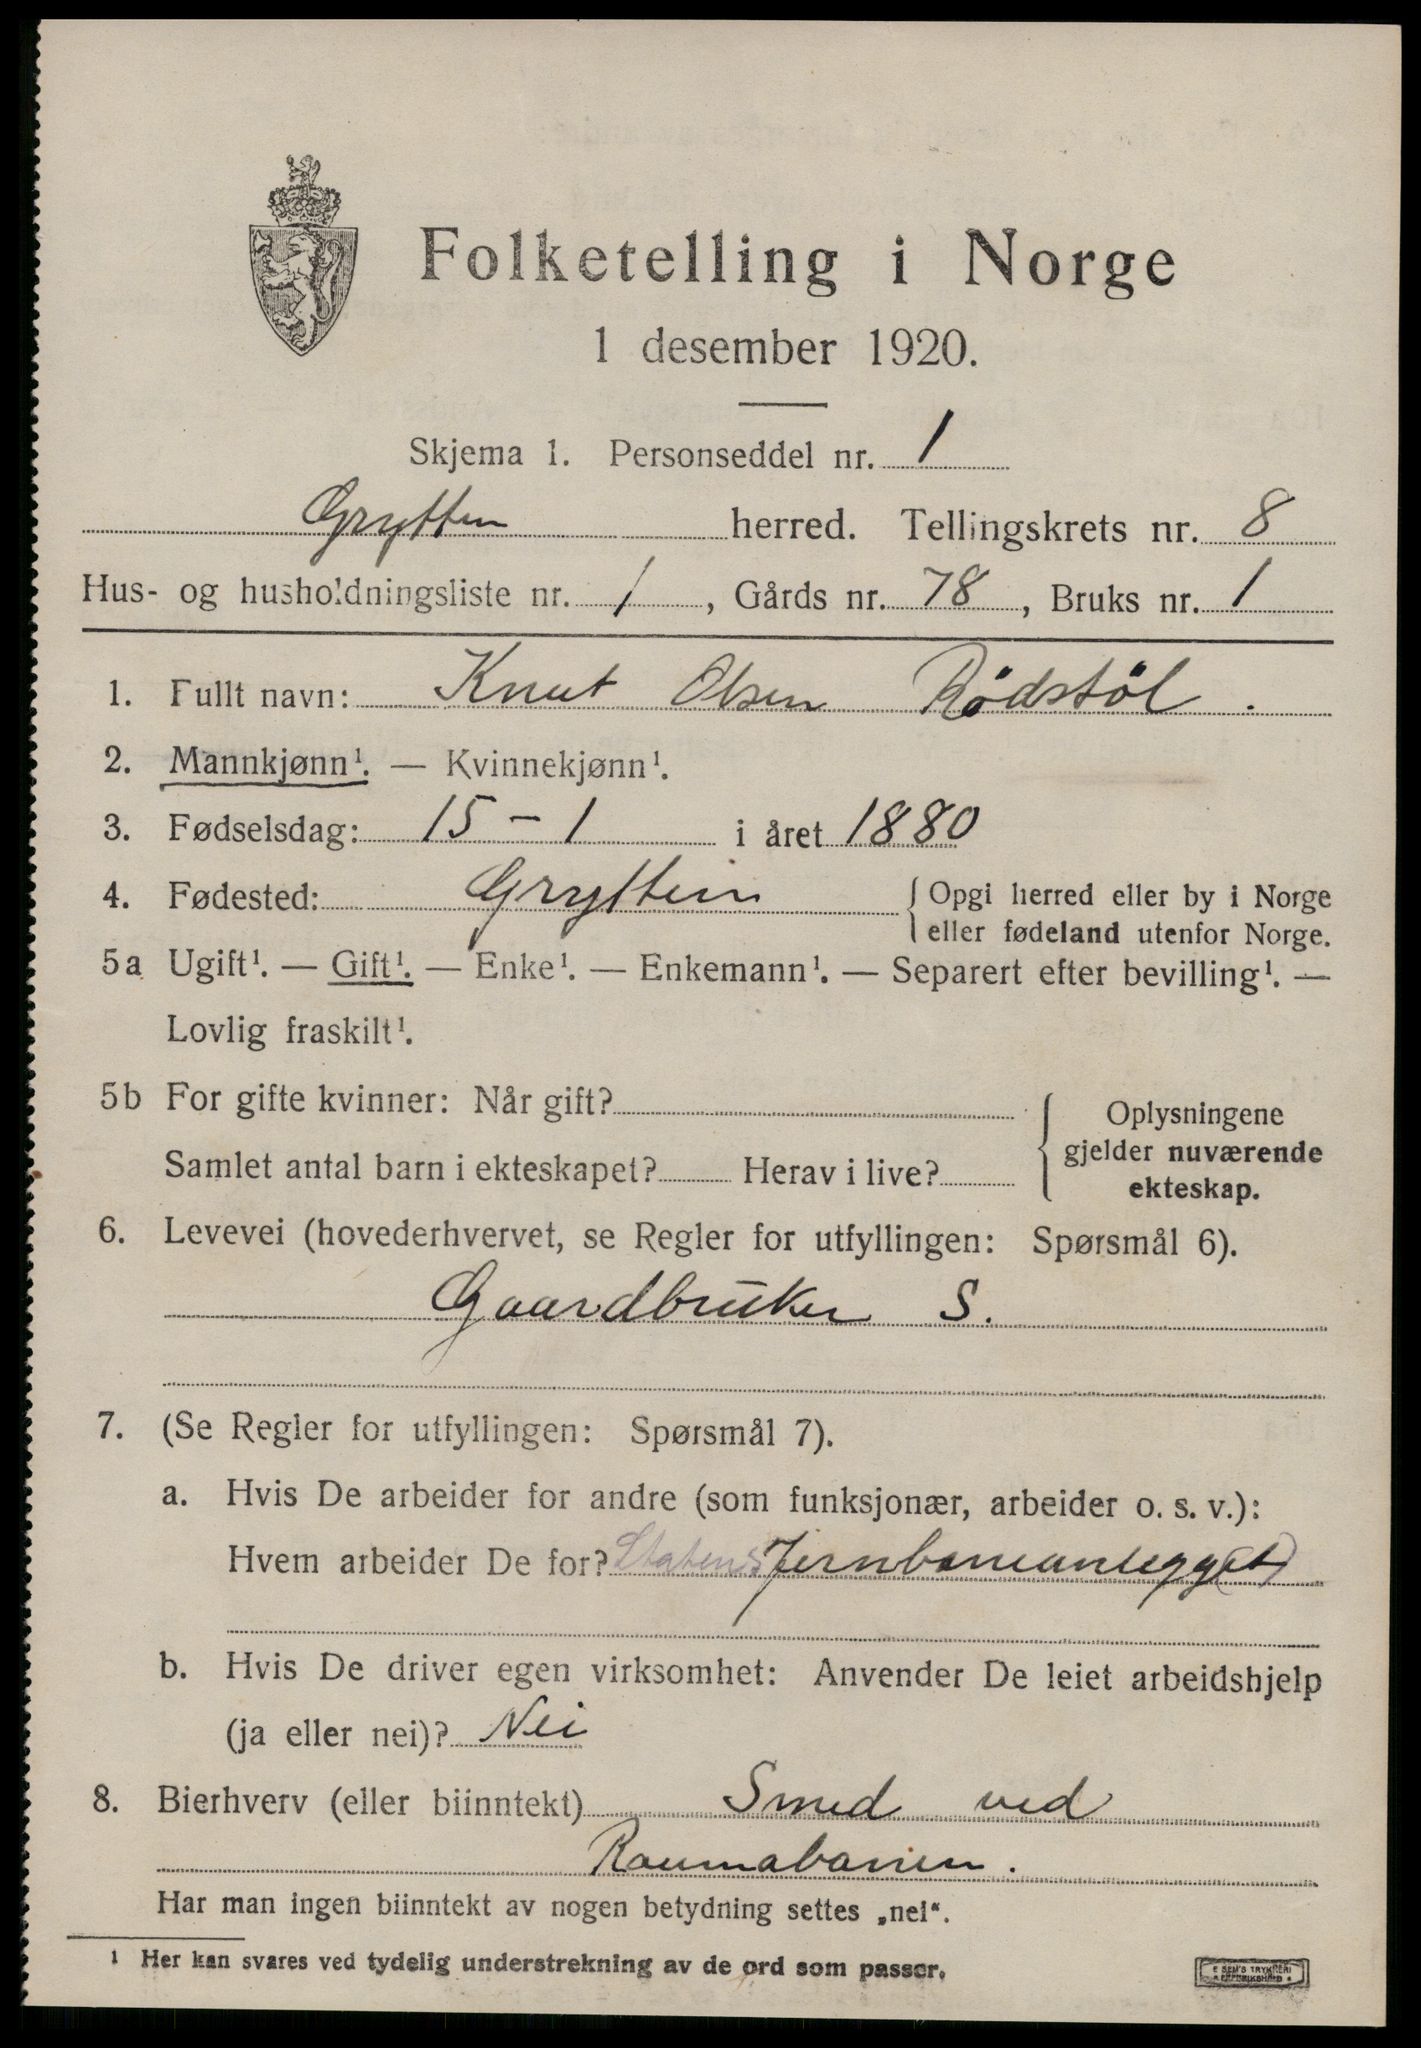 Folketelling i Norge
1 desember 1920.
Skjema 1. Personseddel nr. 1
Grytten herred. Tellingskrets nr. 8
Hus- og husholdningsliste nr. 1, Gårds nr. 78, Bruks nr. 1
1. Fullt navn: Knut Olsen Rödstöl.
2. Mannkjønn¹. — Kvinnekjønn¹.
3. Fødselsdag: 15 - 1 i året 1880
4. Fødested: Grytten { Opgi herred eller by i Norge
eller fødeland utenfor Norge.
5a Ugift¹. — Gift¹. — Enke¹. — Enkemann¹. — Separert efter bevilling¹. —
Lovlig fraskilt¹.
5b For gifte kvinner: Når gift? { Oplysningene
gjelder nuværende
Samlet antal barn i ekteskapet? Herav i live?
ekteskap.
6. Levevei (hovederhvervet, se Regler for utfyllingen: Spørsmål 6).
Gaardbruker S.
7. (Se Regler for utfyllingen: Spørsmål 7).
a. Hvis De arbeider for andre (som funksjonær, arbeider o. s. v.):
Hvem arbeider De for? Statens Jernbaneanlegg(et)
b. Hvis De driver egen virksomhet: Anvender De leiet arbeidshjelp
(ja eller nei)? Nei
8. Bierhverv (eller biinntekt) Smed ved
Raumabanen.
Har man ingen biinntekt av nogen betydning settes „nei“.
1 Her kan svares ved tydelig understrekning av de ord som passer.
SEM'S TRYKKERI
FREDRIKSHALD